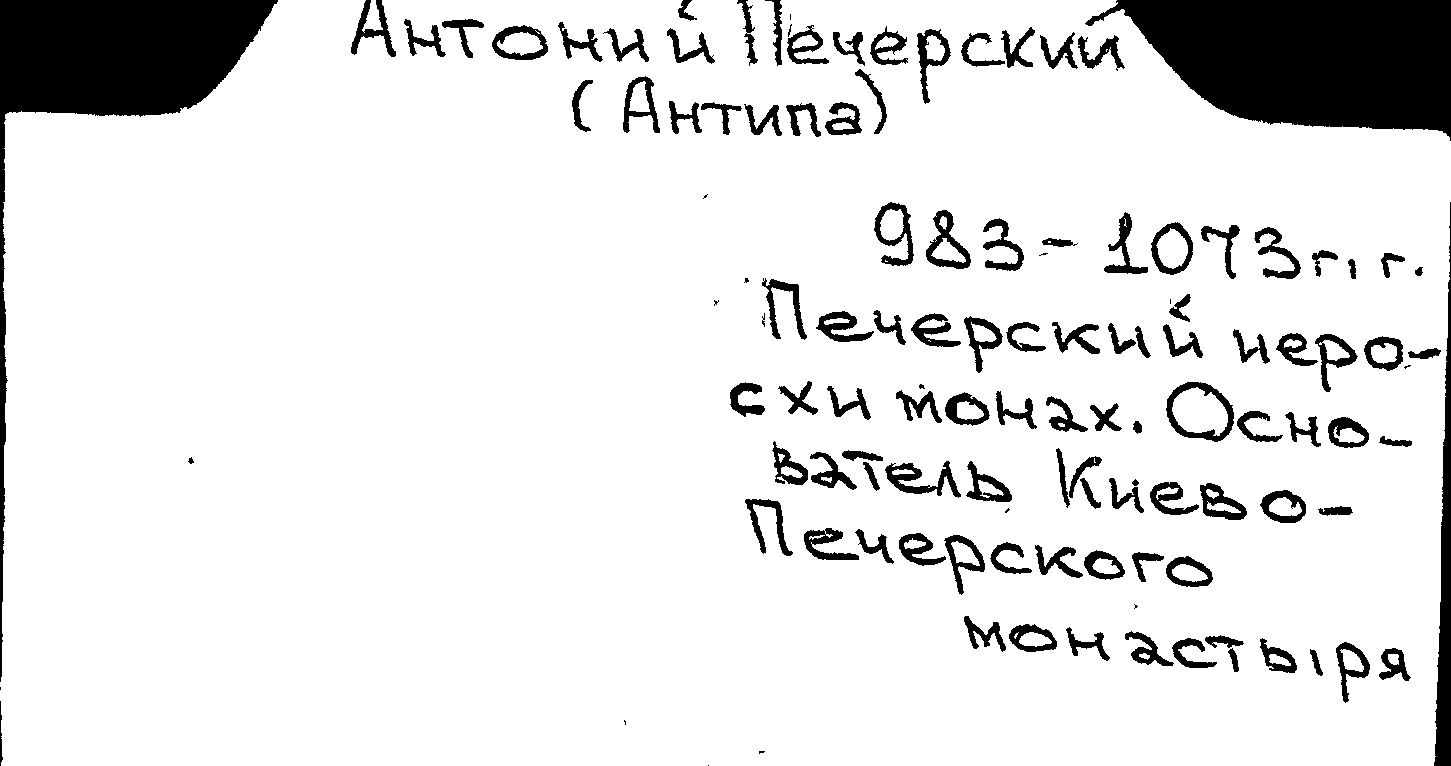 Антоний Печерский
(Антипа)
983-1073г.г.
Печерский иеро-
схи монах. Осно-
ватель Киево-
Печерского
монастыря